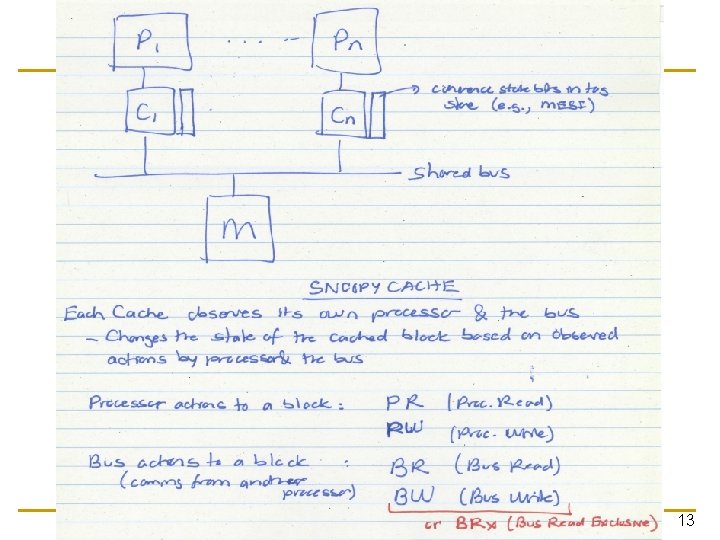 P1 .... -- Pn
C1 Cn → coherence state bits in tag
store (e.g., MESI)
Shared bus
M
SNOOPY CACHE
Each Cache observes its own processor & the bus
- Changes the state of the cached block based on observed
actions by processor & the bus
Processor actions to a block : PR (Proc. Read)
RW (Proc. Write)
Bus actions to a block : BR (Bus Read)
(comms from another BW (Bus Write)
processor)
or BRx (Bus Read Exclusive)
13